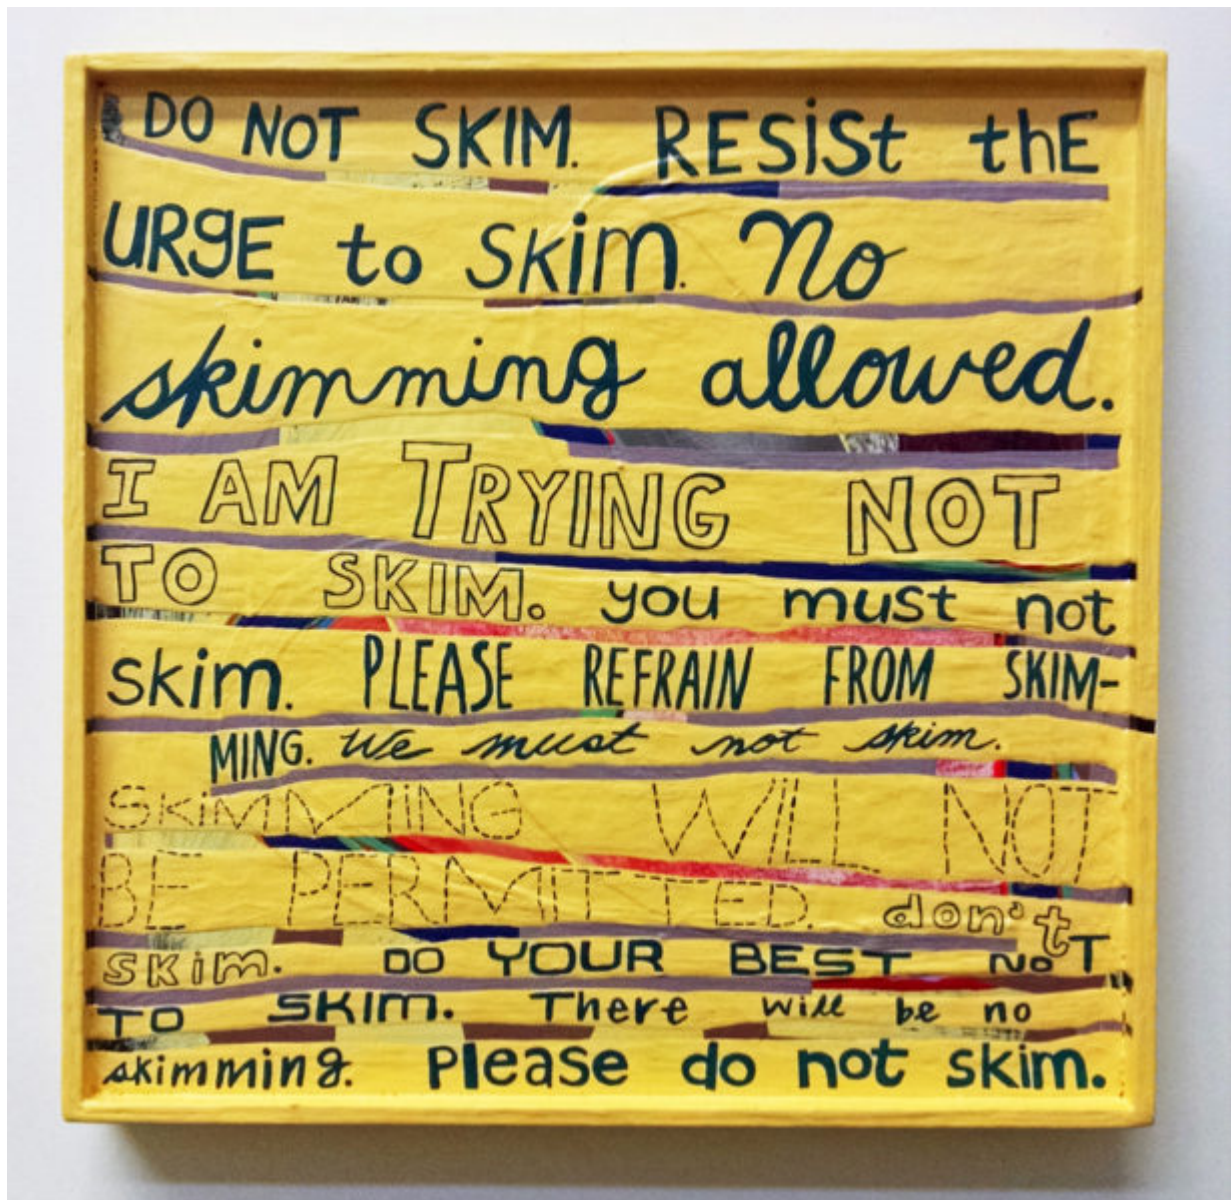 DO NOT SKIM. RESiSt thE
URgE to SKiM. No
skimming allowed.
I AM TRYING NOT
TO SKIM. you must not
skim. PLEASE REFRAIN FROM SKIM-
MING. We must not skim.
SKIMMING WILL NOT
BE PERMITTED. don't
SKim. DO YOUR BEST NoT
TO SKIM. There will be no
skimming. Please do not skim.